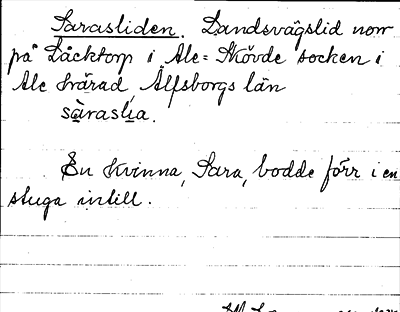 Sarasliden. Landsvägslid norr
på Läcktorp i Ale-Skövde socken i
Ale härad, Älfsborgs län
sàraslia.
En kvinna, Sara, bodde förr i en
stuga intill.